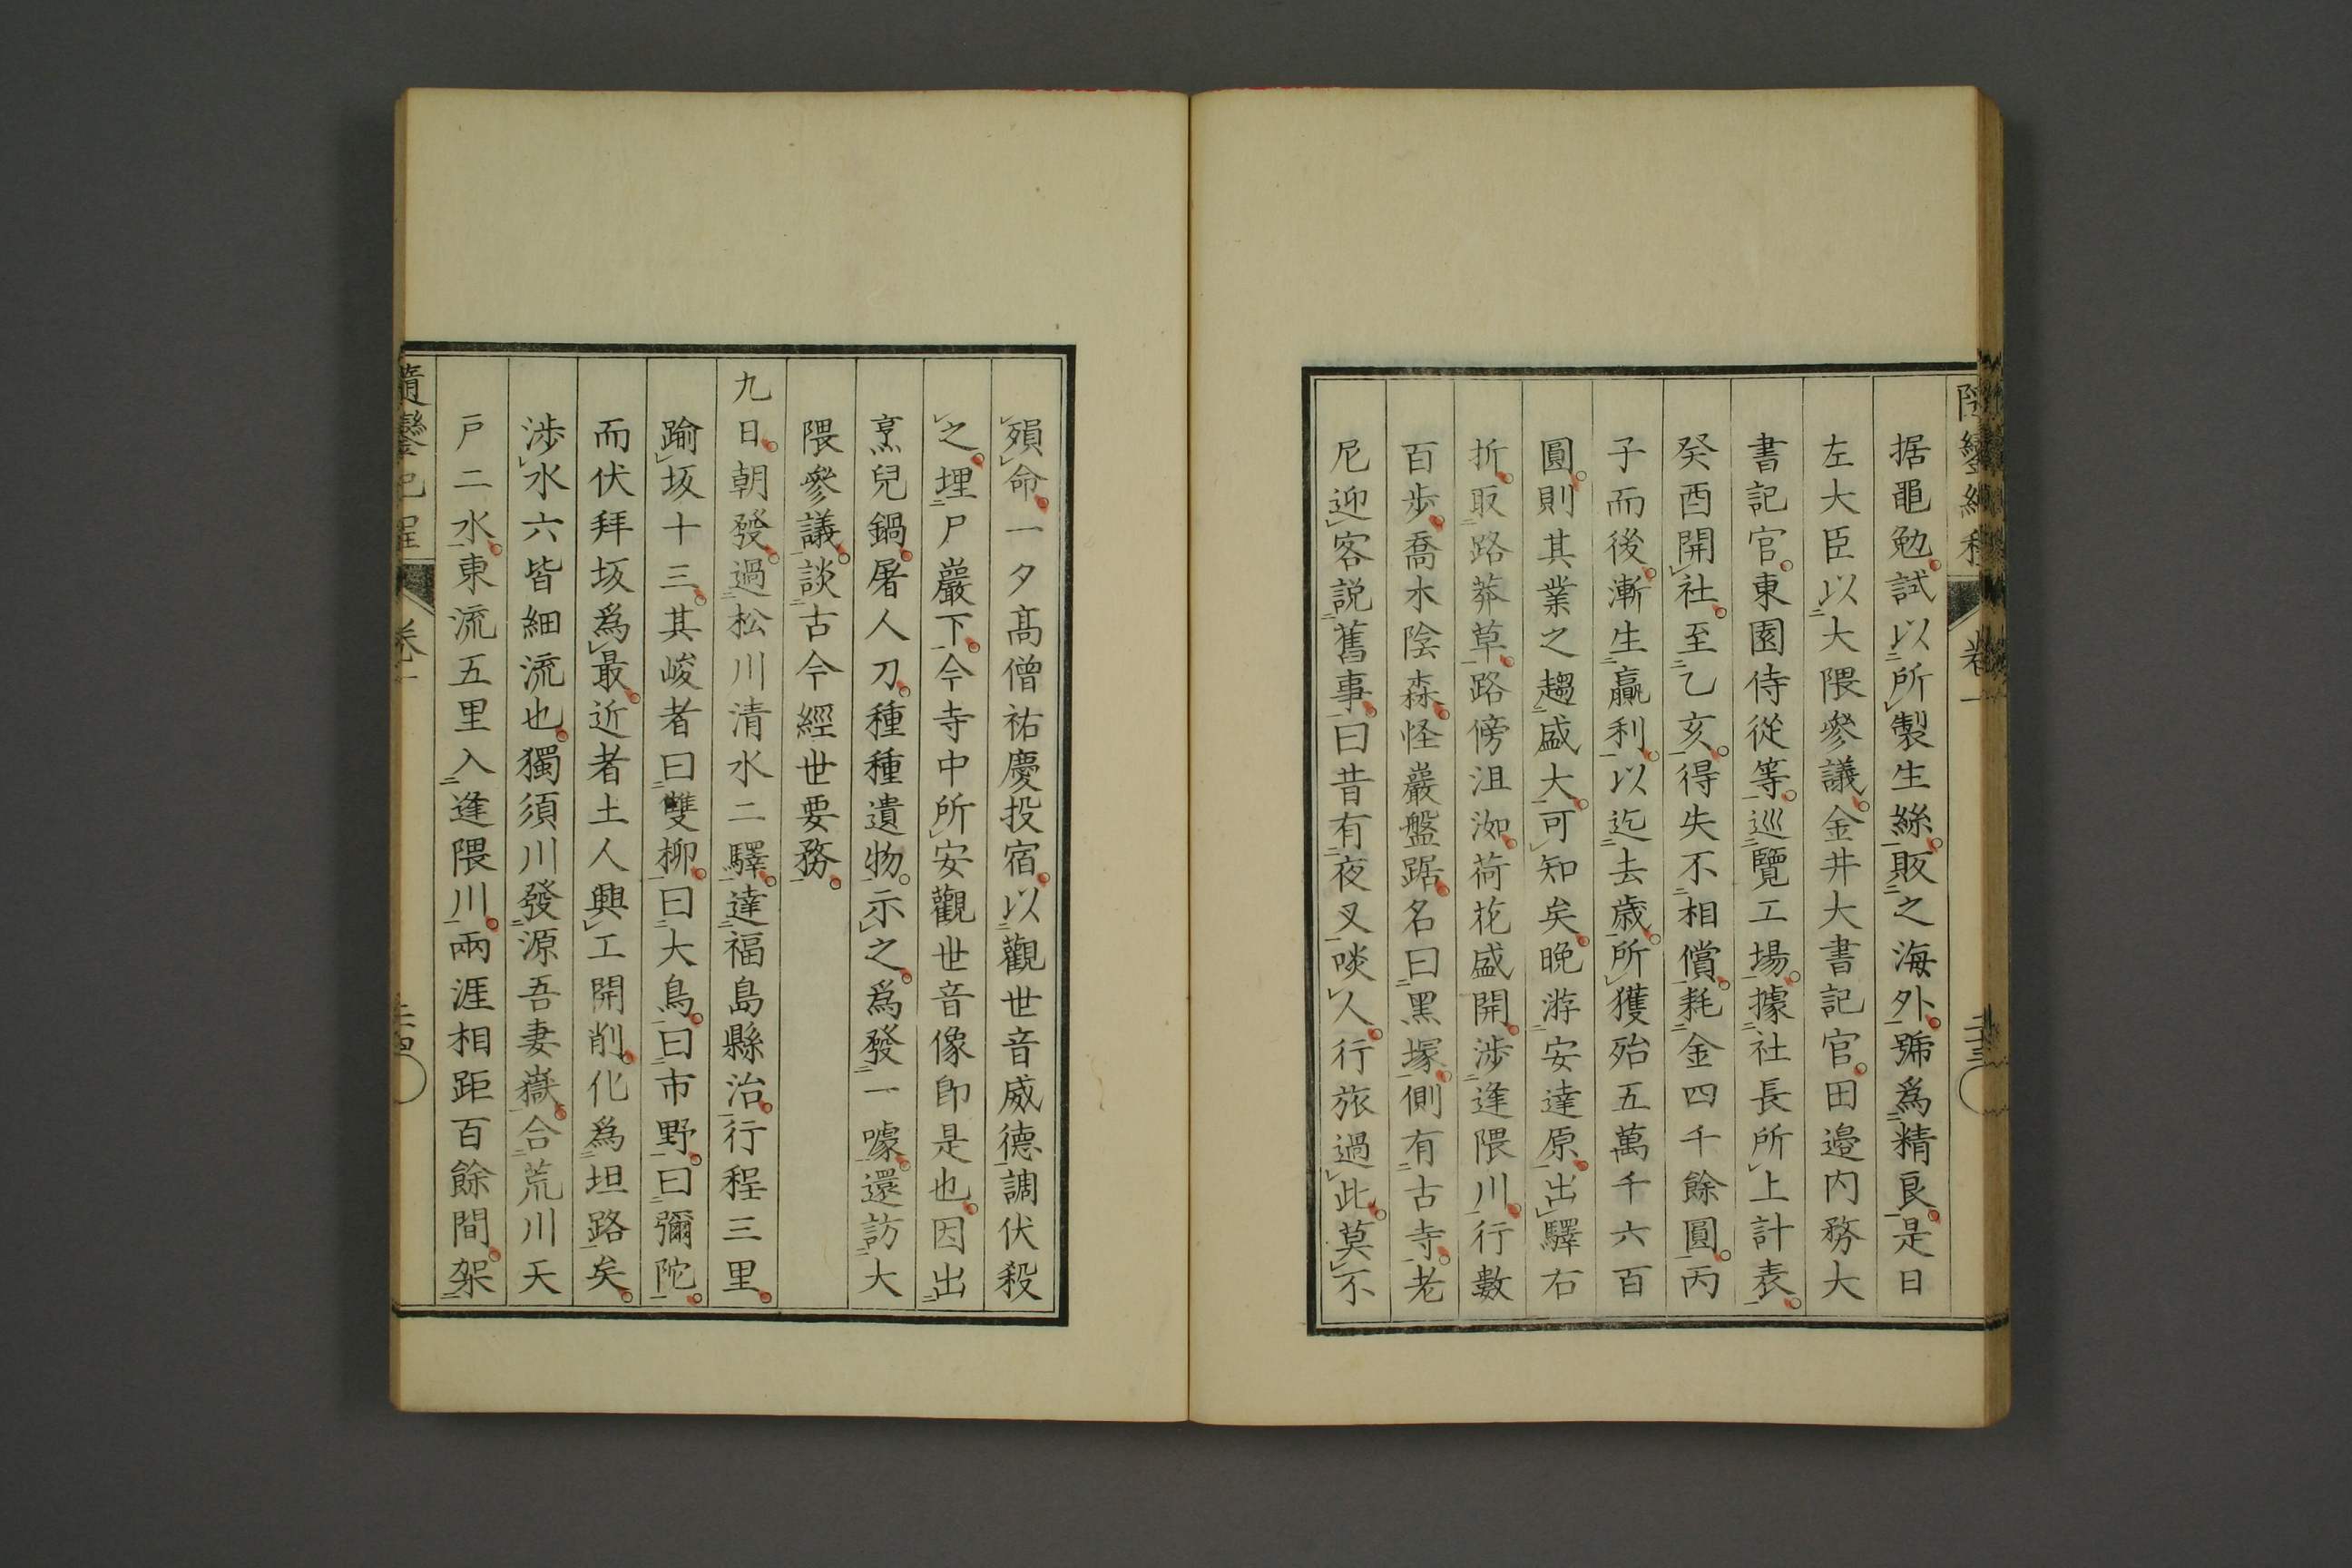 据黽勉。試以所製生絲。販之海外。號爲精良。是日
左大臣以大隈參議。金井大書記官。田邉内務大
書記官。東園侍從等。巡覽工場。據社長所上計表。
癸酉開社。至乙亥。得失不相償。耗金四千餘圓。丙
子而後。漸生贏利。以迄去歳。所獲殆五萬千六百
圓。則其業之趨盛大。可知矣。晩游安達原。出驛右
折。取路莽草。路傍沮洳。荷花盛開。渉逢隈川。行數
百歩。喬木陰森。怪巖盤踞。名曰黑塚。側有古寺。老
尼迎客説舊事。曰昔有夜叉啖人。行旅過此。莫不
殞命。一夕髙僧祐慶投宿。以觀世音威德調伏殺
之。埋尸巖下。今寺中所安觀世音像卽是也。因出
烹兒鍋。屠人刀。種種遺物。示之。爲發一噱。還訪大
隈參議。談古今經世要務。
九日。朝發。過松川清水二驛。達福島縣治。行程三里。
踰坂十三。其峻者曰雙柳。曰大鳥。曰市野。曰彌陀。
而伏拜坂爲最。近者土人興工開削。化爲坦路矣。
渉水六皆細流也。獨須川發源吾妻嶽。合荒川天
戸二水。東流五里入逢隈川。兩涯相距百餘間。架
隨鑾紀程
卷一